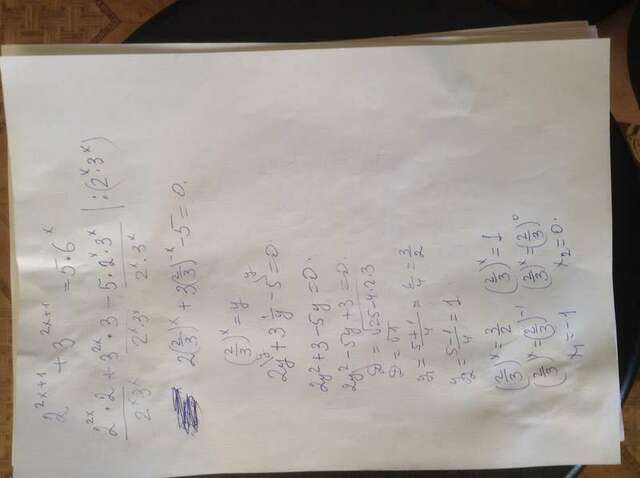 2^{2x+1} + 3^{2x+1} = 5·6^x
\frac{2^{2x}·2}{2^x 3^x} + \frac{3^{2x}·3}{2^x·3^x} - \frac{5·2^x·3^x}{2^x·3^x} | :(2^x·3^x)
2(\frac{2}{3})^x + 3(\frac{2}{3})^{-x} - 5 = 0.
(\frac{2}{3})^x = y
2y^{\y} + 3\frac{1}{y} - 5^{\y} = 0.
2y² + 3 - 5y = 0.
2y² - 5y + 3 = 0.
D = √25-4·2·3
D = √1
y_1 = \frac{5+1}{4} = \frac{6}{4} = \frac{3}{2}
y_2 = \frac{5-1}{4} = 1
(\frac{2}{3})^x = \frac{3}{2} (\frac{2}{3})^x = 1
(\frac{2}{3})^x = (\frac{2}{3})^{-1} (\frac{2}{3})^x = (\frac{2}{3})^0
x_1 = -1 x_2 = 0.